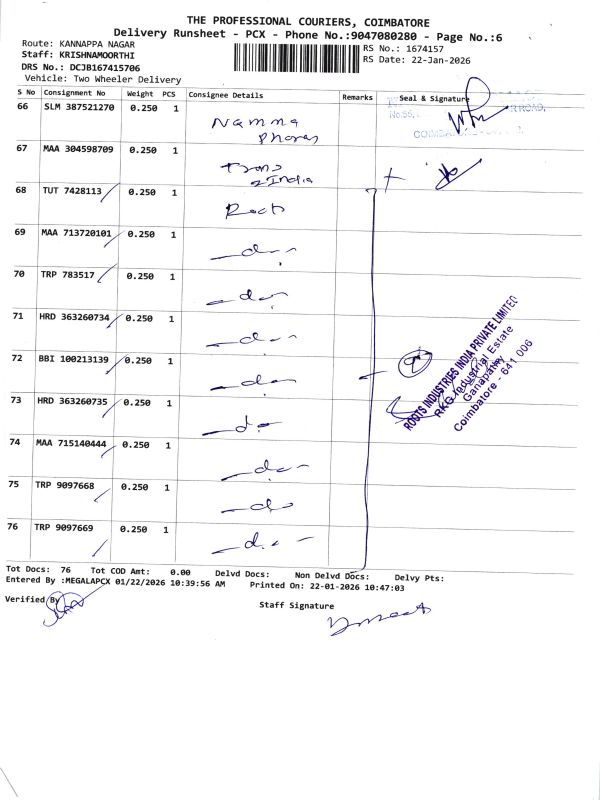 THE PROFESSIONAL COURIERS, COIMBATORE
Delivery Runsheet - PCX - Phone No.:9047080280 - Page No.:6
Route: KANNAPPA NAGAR
Staff: KRISHNAMOORTHI
DRS No.: DCJB167415706
Vehicle: Two Wheeler Delivery
RS No.: 1674157
RS Date: 22-Jan-2026
S No Consignment No Weight PCS Consignee Details Remarks Seal & Signature
66 SLM 387521270 0.250 1 Namma
67 MAA 304598709 0.250 1 Trans India
68 TUT 7428113 0.250 1 Roots
69 MAA 713720101 0.250 1 -do-
70 TRP 783517 0.250 1 -do-
71 HRD 363260734 0.250 1 -do-
72 BBI 100213139 0.250 1 -do-
73 HRD 363260735 0.250 1 -do-
74 MAA 715140444 0.250 1 -do-
75 TRP 9097668 0.250 1 -do-
76 TRP 9097669 0.250 1 -do-
ROOTS INDUSTRIES INDIA PRIVATE LIMITED
RKG Industrial Estate
Ganapathy
Coimbatore - 641 006
Tot Docs: 76 Tot COD Amt: 0.00 Delvd Docs: Non Delvd Docs: Delvy Pts:
Entered By :MEGALAPCX 01/22/2026 10:39:56 AM Printed On: 22-01-2026 10:47:03
Verified By
Staff Signature